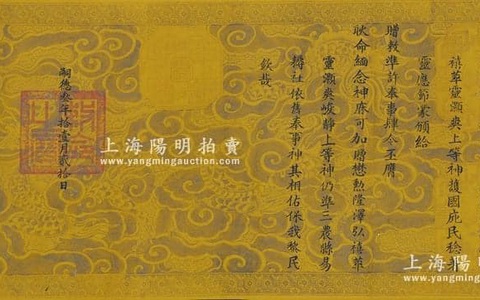 禧萃靈灝奭上等神護國庇民稔著
靈應節蒙頒給
贈敕準許奉事肆今丕膺
耿命緬念神庥可加贈懋勲隆澤弘禧萃
靈灝奭峻靜上等神仍準三農縣易
耨社依舊奉事神其相佑保我黎民
欽哉
嗣德叁年拾壹月貳拾日
上海陽明拍賣
www.yangmingauction.com
上海陽明
www.yangming